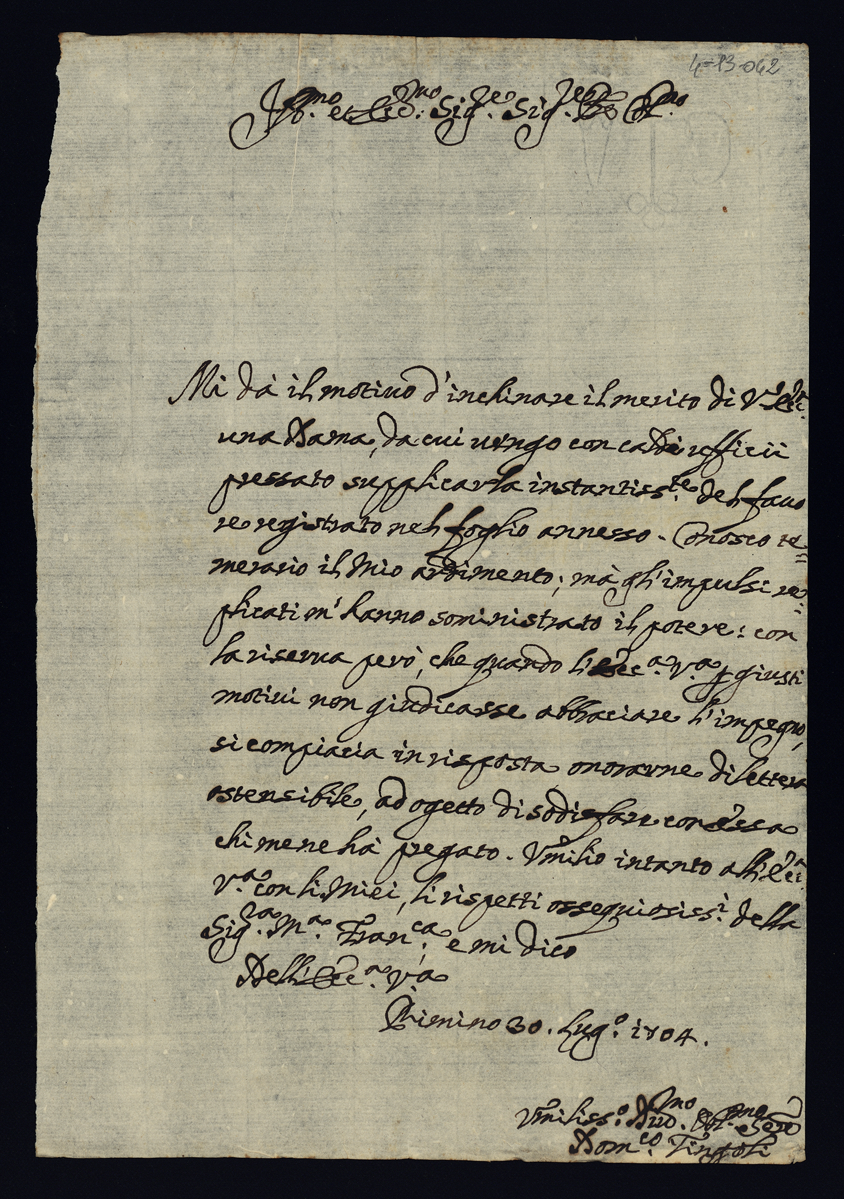 4-13-042
Ill.mo et Ecc.mo Sig.re Sig.re P.ron Col.mo
Mi dà il motivo d'inchinare il merito di V.a Ecc.a
una Dama, da cui vengo con caldi ufficii
pressato supplicarla instantiss.te del favo
re registrato nel foglio annesso. Conosco te=
merario il Mio ardimento; mà gl'impulsi re=
plicati m'hanno soministrato il potere: con
la riserva però, che quando l'Ecc.a V.a p giusti
motivi non giudicasse abbraciare l'impegno,
si compiacia in risposta onorarne di lettera
ostensibile, ad ogetto di sodisfare con essa
chi me ne hà pregato. Umilio intanto all'Ecc.a
V.a con li Miei, li rispetti ossequiosiss.i della
Sig.ra M.a Fran.ca, e mi dico
Dell'Ecc.a V.a
Rimino 30. Lug.o 1704.
Umiliss.o Div.mo Obl.mo Ser.e
Dom.co Tingoli